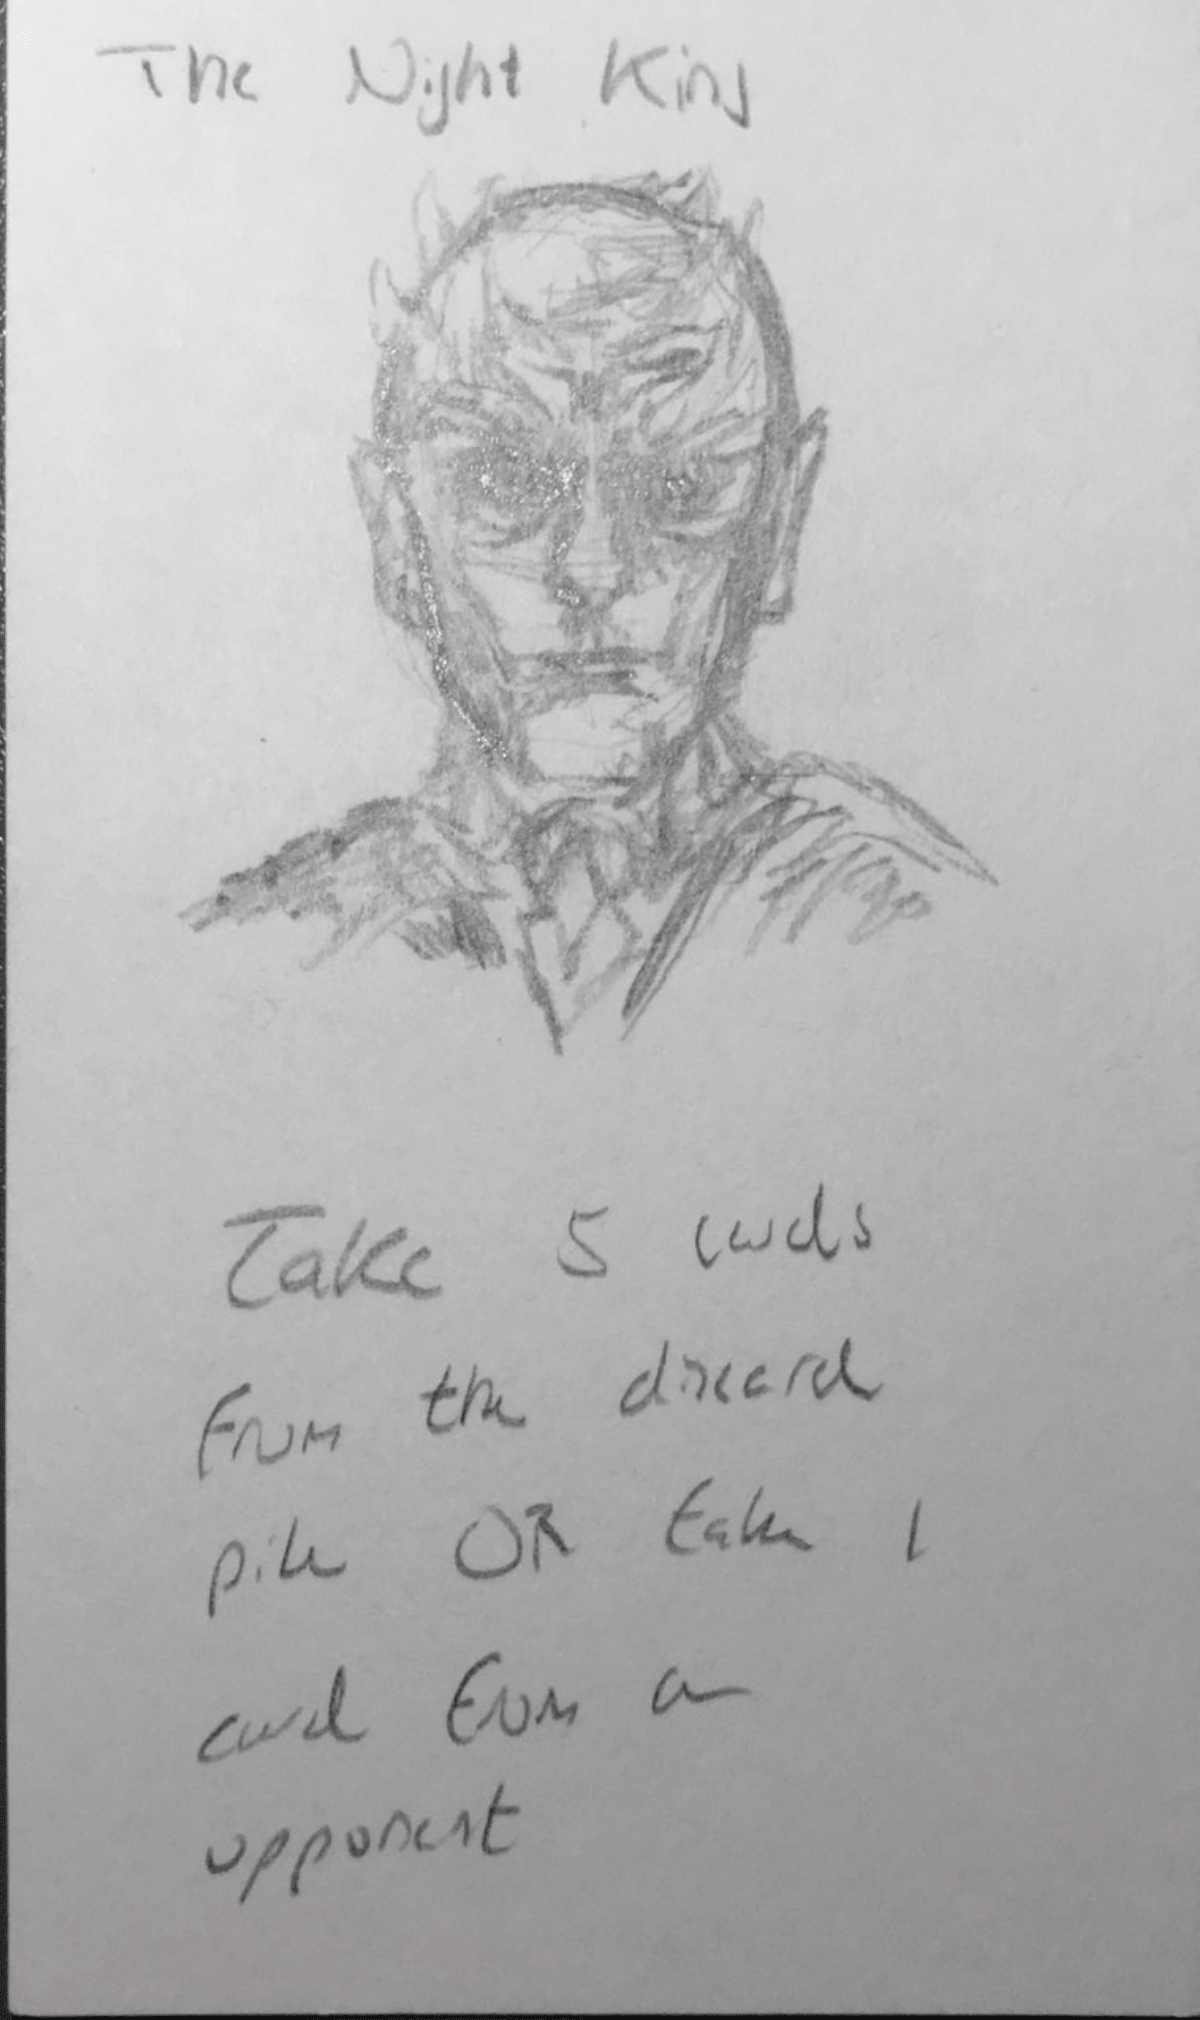 The Night King
Take 5 cards
From the discard
pile OR take 1
card from an
opponent